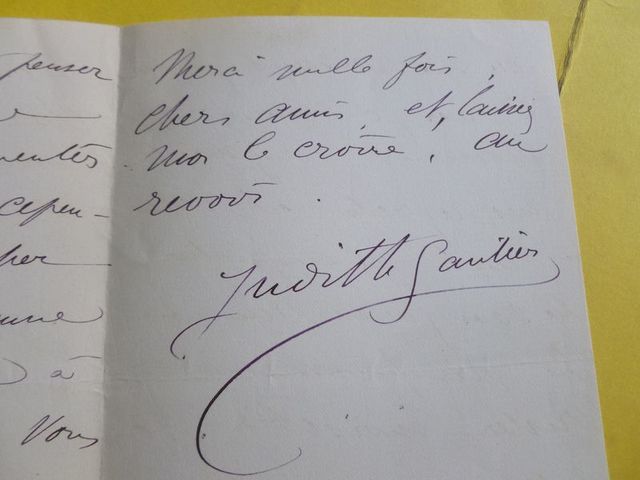 penser
entes
cepen-
à
Vous
Merci mille fois,
chers amis, et, laissez
moi le croire, au
revoir.
Judith Gautier